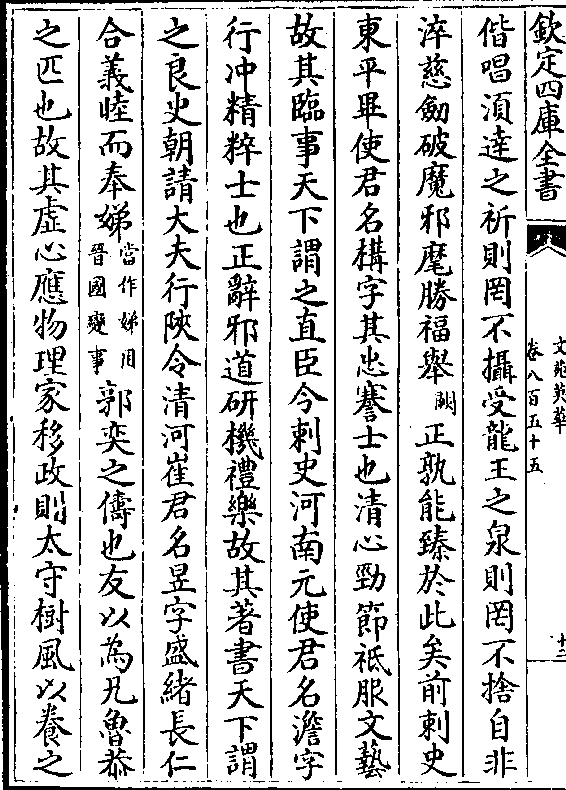 欽定四庫全書
文苑英華
卷八百五十五
十二
偕唱須達之祈則罔不攝受龍王之泉則罔不捨自非
淬慈劒破魔邪麾勝福舉闕正孰能臻於此矣前刺史
東平畢使君名構字其忠謇士也清心勁節祗服文藝
故其臨事天下謂之直臣今刺史河南元使君名澹字
行冲精粹士也正辭邪道研機禮樂故其著書天下謂
之良史朝請大夫行陜令清河崔君名昱字盛緒長仁
合義睦而奉娣當作娣用晉國變事郭奕之儔也友以為凡魯恭
之匹也故其虛心應物理家移政則太守樹風以養之